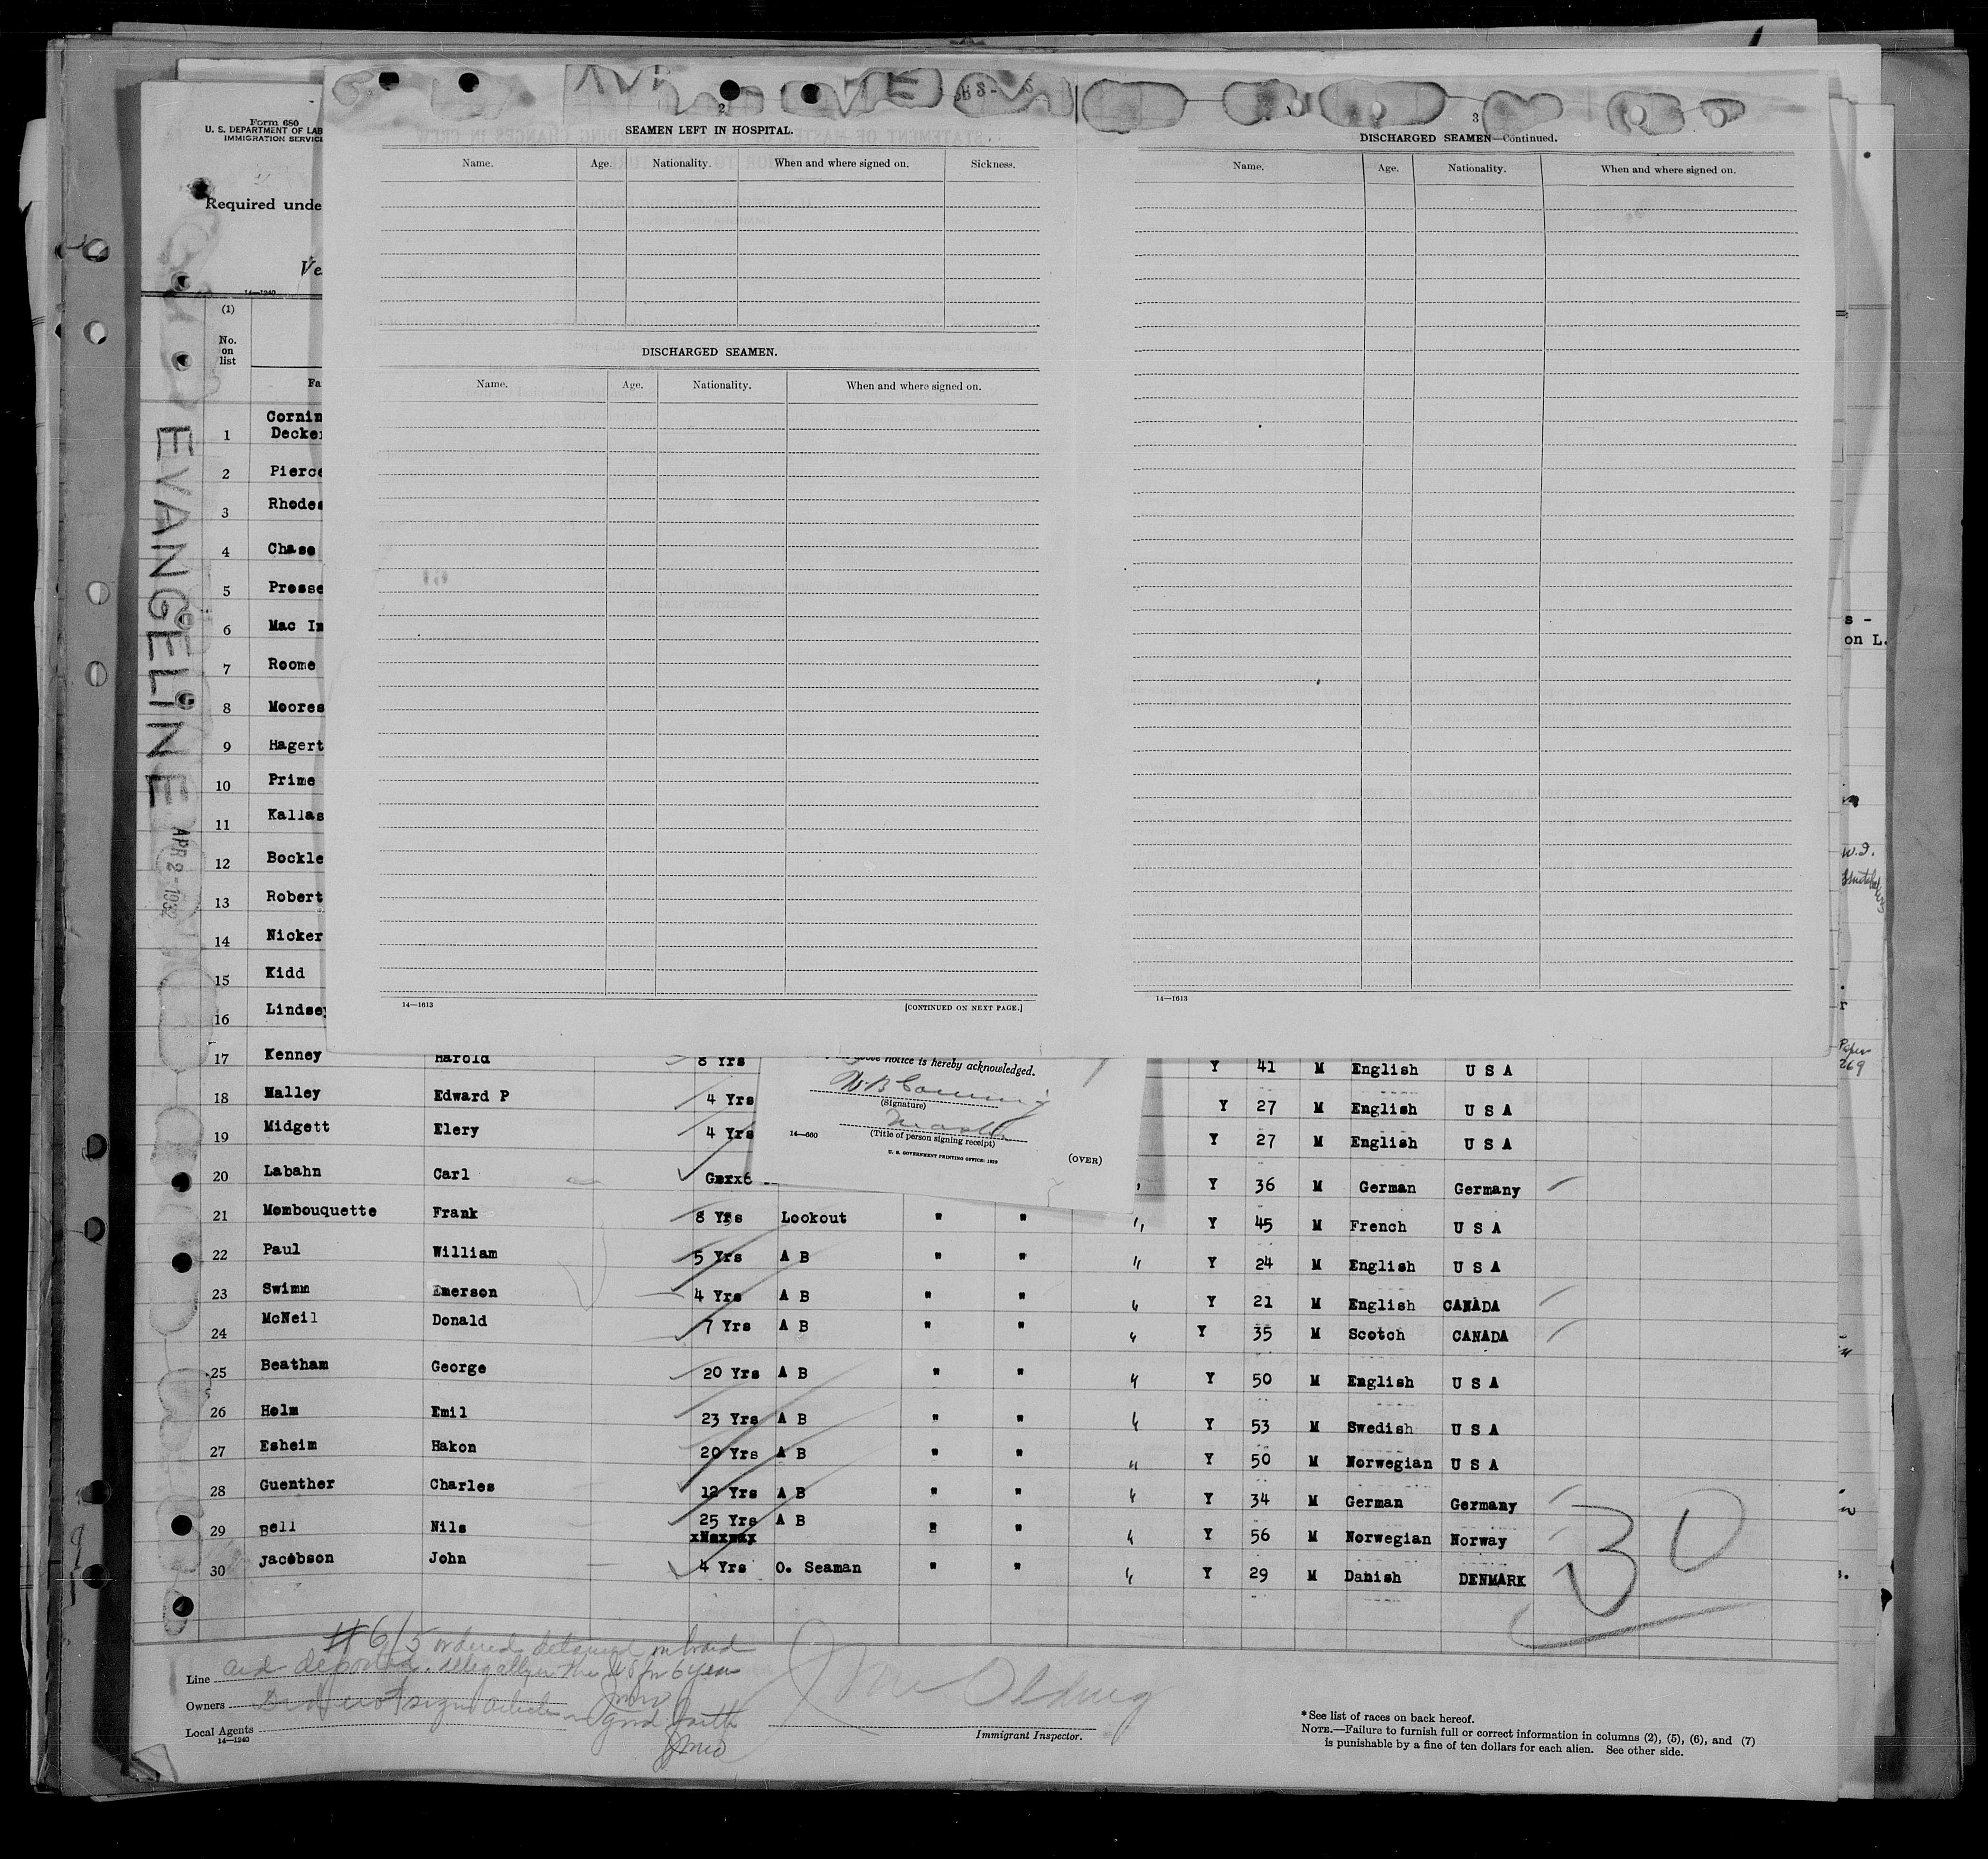 Form 680
U. S. DEPARTMENT OF LAB
IMMIGRATION SERVICE
Required unde
Ve
14—1240
(1)
No.
on
list
Fa
EVANGELINE APR 2 - 1932
2
SEAMEN LEFT IN HOSPITAL.
Name. Age. Nationality. When and where signed on. Sickness.
DISCHARGED SEAMEN.
Name. Age. Nationality. When and where signed on.
14—1613 [CONTINUED ON NEXT PAGE.]
3
DISCHARGED SEAMEN—Continued.
Name. Age. Nationality. When and where signed on.
14—1613
Cornin
1 Decker
2 Pierce
3 Rhodes
4 Chase
5 Prosse
6 Mac In
7 Roome
8 Moores
9 Hagert
10 Prime
11 Kallas
12 Bockle
13 Robert
14 Nicker
15 Kidd
16 Lindsey
17 Kenney Harold 8 Yrs Y 41 M English U S A
18 Malley Edward P 4 Yrs Y 27 M English U S A
19 Midgett Elery 4 Yrs Y 27 M English U S A
20 Labahn Carl Y 36 M German Germany
21 Mombouquette Frank 8 Yrs Lookout " " " Y 45 M French U S A
22 Paul William 5 Yrs A B " " " Y 24 M English U S A
23 Swimm Emerson 4 Yrs A B " " " Y 21 M English CANADA
24 McNeil Donald 7 Yrs A B " " " Y 35 M Scotch CANADA
25 Beatham George 20 Yrs A B " " " Y 50 M English U S A
26 Holm Emil 23 Yrs A B " " " Y 53 M Swedish U S A
27 Esheim Hakon 20 Yrs A B " " " Y 50 M Norwegian U S A
28 Guenther Charles 12 Yrs A B " " " Y 34 M German Germany
29 Bell Nils 25 Yrs A B " " " Y 56 M Norwegian Norway
30 Jacobson John 4 Yrs O. Seaman " " " Y 29 M Danish DENMARK
30
notice is hereby acknowledged.
W. B. Corning
(Signature)
Master
14—660 (Title of person signing receipt)
U. S. GOVERNMENT PRINTING OFFICE: 1929
(OVER)
s -
on L.
W.I.
r
Papers
269
#6/5 ordered detained on board
and deported. illegally in the US for 6 years
Did not sign articles in good faith
Line
Owners
Local Agents
14—1240
Immigrant Inspector.
* See list of races on back hereof.
NOTE.—Failure to furnish full or correct information in columns (2), (5), (6), and (7)
is punishable by a fine of ten dollars for each alien. See other side.